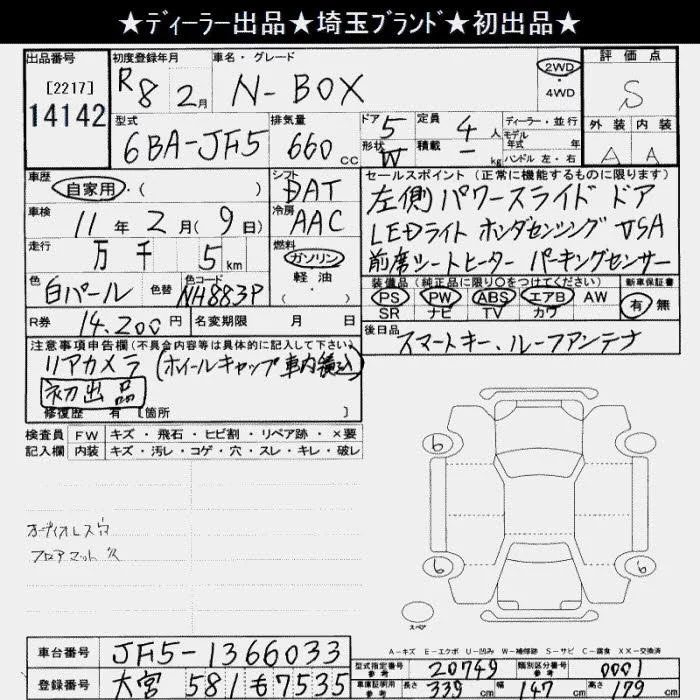 ★ディーラー出品★埼玉ブランド★初出品★
出品番号 初度登録年月 車名・グレード 2WD 評価点
[2217] R8 2月 N-BOX ・4WD S
14142 型式 排気量 ドア 5 定員 4人 ディーラー・並行 外装 内装
6BA-JF5 660cc 形状 W 積載 ー kg モデル年式 年 A A
ハンドル 左・右
車歴 シフト セールスポイント(正常に機能するものに限ります)
自家用・( ) DAT 左側パワースライドドア
車検 11年2月(9日) 冷房 AAC LEDライト ホンダセンシング VSA
走行 万千5km 燃料 ガソリン 前席シートヒーター パーキングセンサー
軽油 装備品(純正品に限り○をつけてください) 新車保証書
色 白パール 色替 色コード NH883P ・( ) PS PW ABS エアB AW 有・無
SR ナビ TV カワ
R券 14,200円 名変期限 月 日 後日品
スマートキー、ルーフアンテナ
注意事項申告欄(不具合内容等は具体的に記入して下さい)
リアカメラ (ホイールキャップ車内積込)
初出品
修復歴 有[箇所 ]
検査員 FW キズ・飛石・ヒビ割・リペア跡・×要
記入欄 内装 キズ・汚レ・コゲ・穴・スレ・キレ・破レ
6
オーディオレス
フロアマット欠
6 6
スペア
A-キズ E-エクボ U-凹み W-補修跡 S-サビ C-腐食 XX-交換済
車台番号 JF5-1366033 型式指定番号 参考 20749 類別区分番号 参考 0001
登録番号 大宮 581 も 7535 車庫証明用 参考 長さ 339cm 幅 147cm 高さ 179cm